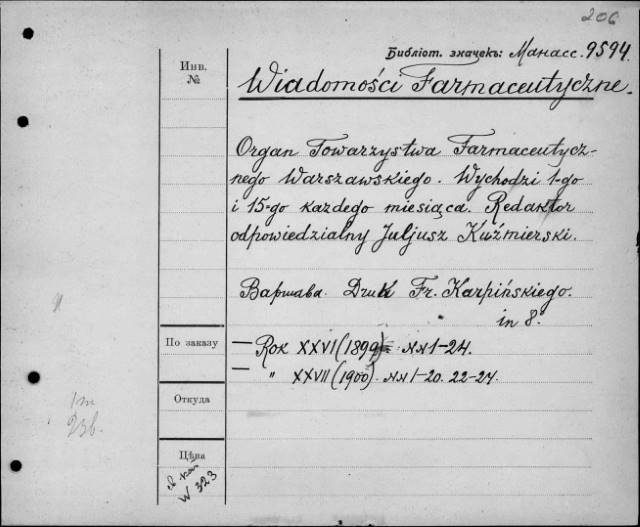 206
Библіот. значекъ: Манасс. 9594.
Инв.
№
Wiadomości Farmaceutyczne.
Organ Towarzystwa Farmaceutycz-
nego Warszawskiego. Wychodzi 1-go
i 15-go każdego miesiąca. Redaktor
odpowiedzialny Juljusz Kuźmierski.
Варшава. Druk Fr. Karpińskiego.
" in 8.
По заказу
— Rok XXVI (1899) NN 1-24.
— " XXVII (1900). NN 1-20. 22-24.
Откуда
Цѣна
W 323